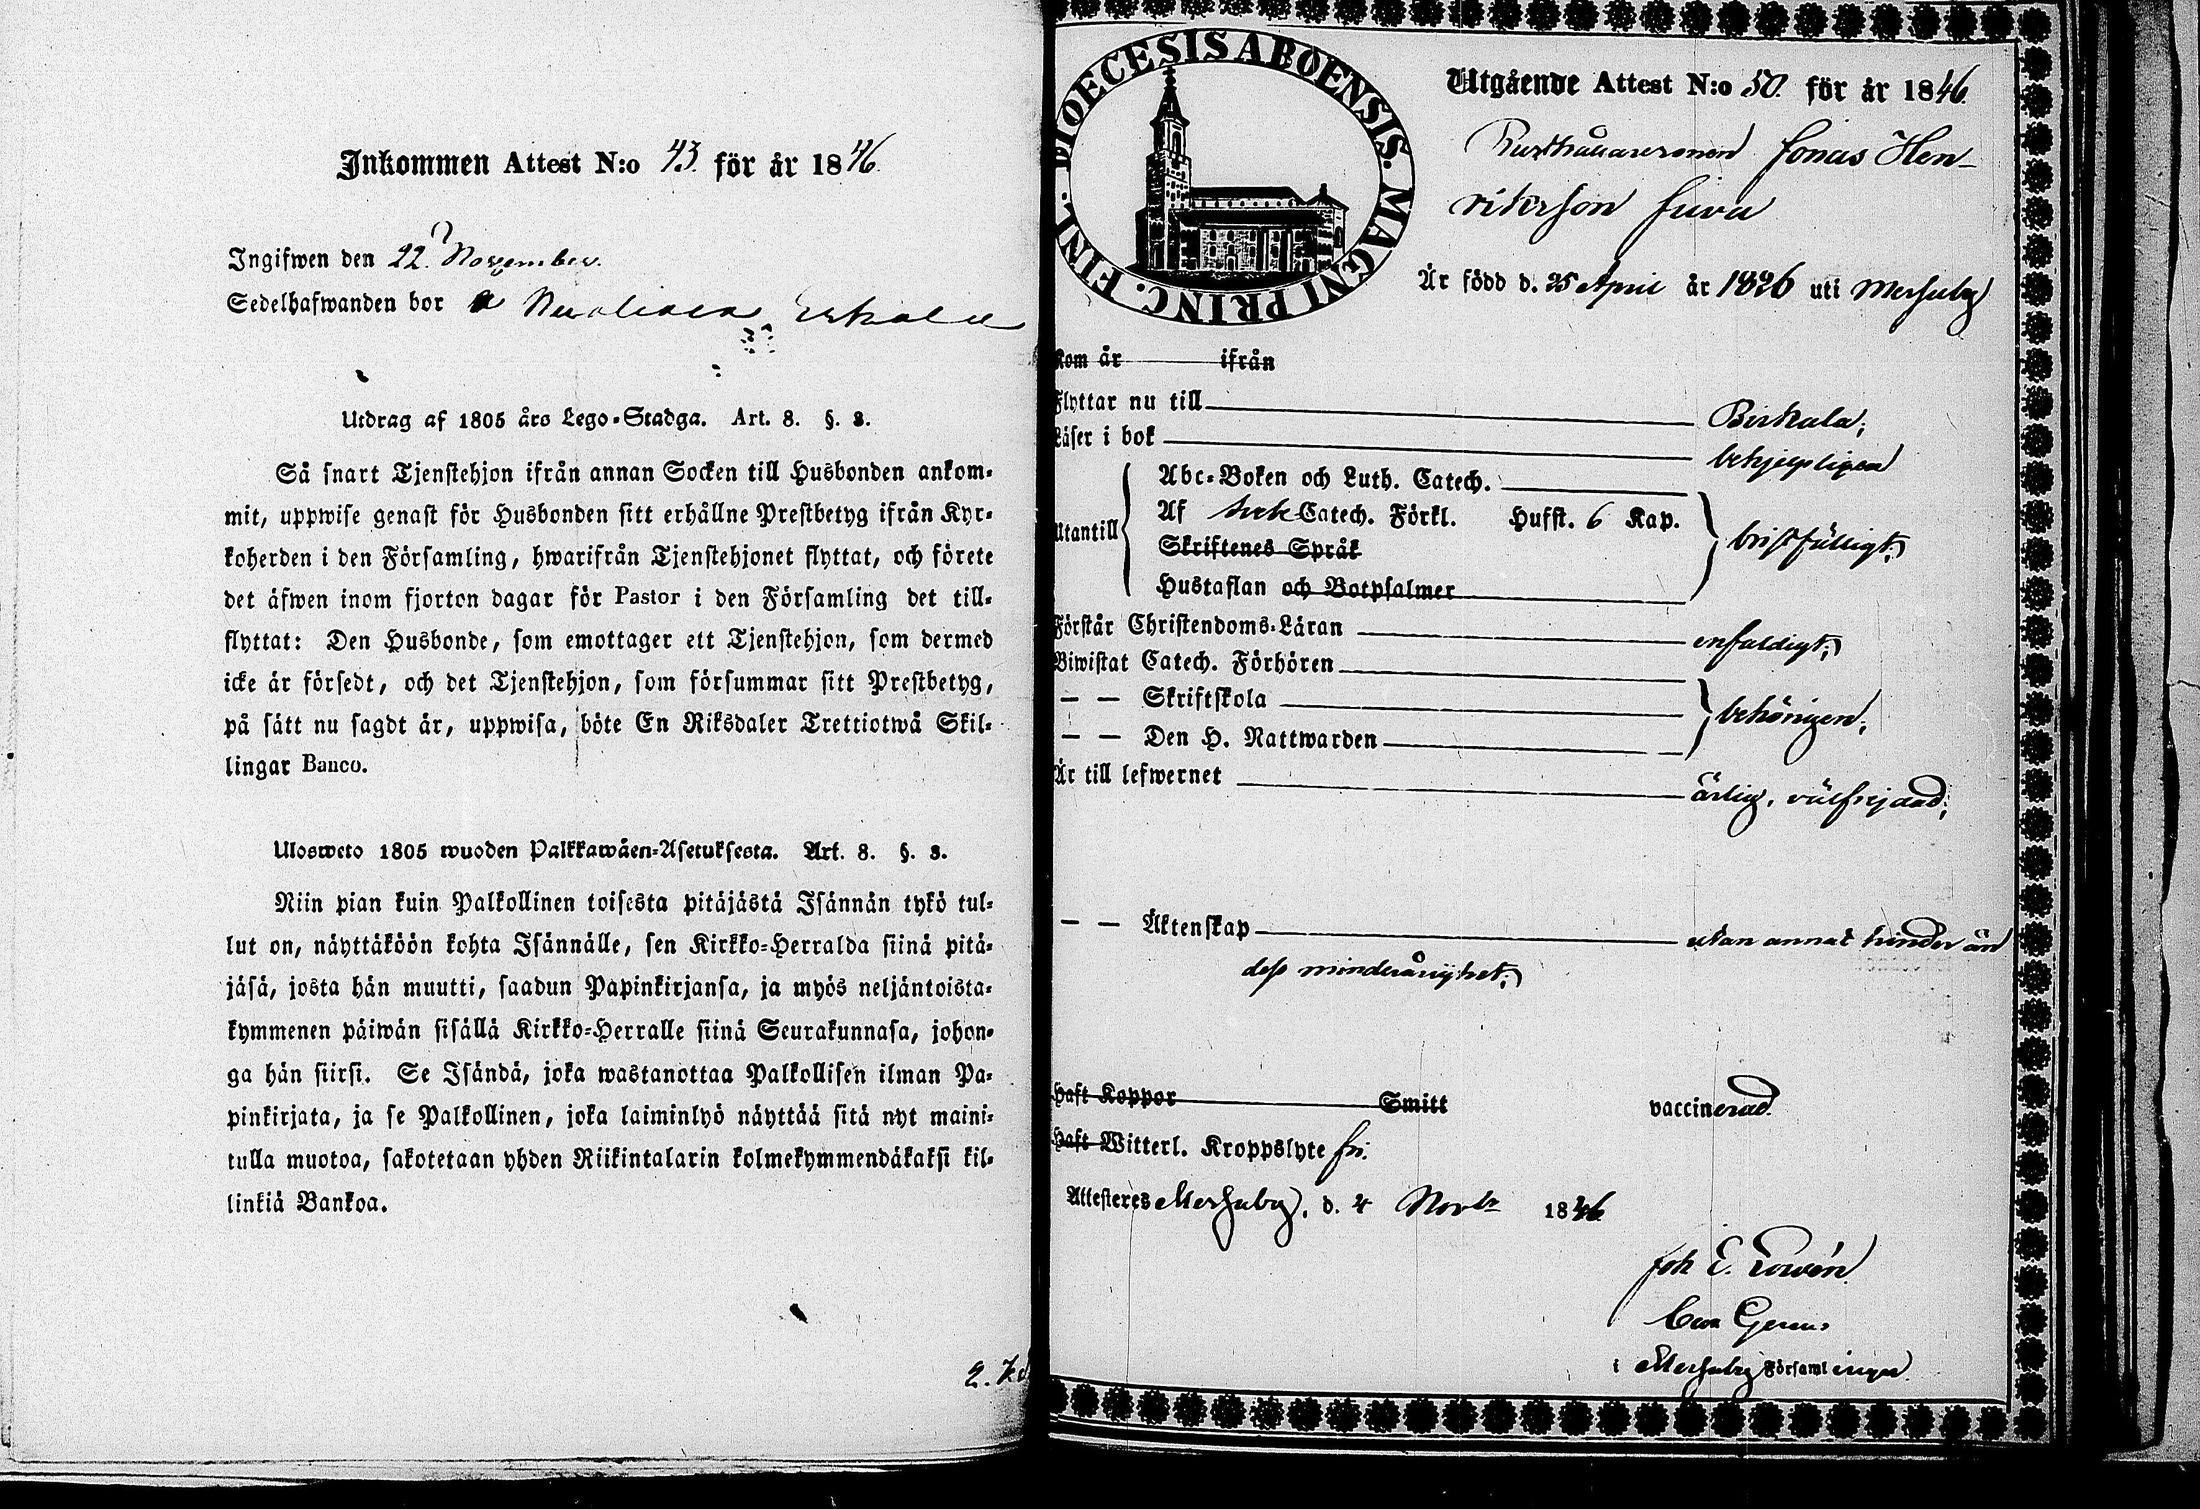 Inkommen Attest N:o 43. för år 1846.
Ingifwen den 22. November.
Sedelhafwanden bor
Utdrag af 1805 års Lego-Stadga. Art. 8. §. 3.
Så snart Tjenstehjon ifrån annan Socken till Husbonden ankom-
mit, uppwise genast för Husbonden sitt erhållne Prestbetyg ifrån Kyr-
koherden i den Församling, hwarifrån Tjenstehjonet flyttat, och förete
det äfwen inom fjorton dagar för Pastor i den Församling det till-
flyttat: Den Husbonde, som emottager ett Tjenstehjon, som dermed
icke är försedt, och det Tjenstehjon, som försummar sitt Prestbetyg,
på sätt nu sagdt är, uppwisa, böte En Riksdaler Trettiotwå Skil-
lingar Banco.
Ulosweto 1805 wuoden Palkkawäen-Asetuksesta. Art. 8. §. 3.
Niin pian kuin Palkollinen toisesta pitäjästä Isännän tykö tul-
lut on, näyttäköön kohta Isännälle, sen Kirkko-Herralda siinä pitä-
jäsä, josta hän muutti, saadun Papinkirjansa, ja myös neljäntoista-
kymmenen päiwän sisällä Kirkko-Herralle siinä Seurakunnasa, johon-
ga hän siirsi. Se Isändä, joka wastanottaa Palkollisen ilman Pa-
pinkirjata, ja se Palkollinen, joka laiminlyö näyttää sitä nyt maini-
tulla muotoa, sakotetaan yhden Riikintalarin kolmekymmendäkaksi kil-
linkiä Bankoa.
DIOECESIS ABOENSIS. MAGNI PRINC. FINL.
Utgående Attest N:o 50. för år 1846.
Jonas Hen-
rikson Juva
Är född d. 25 April år 1826 uti Messuby
Kom år ifrån
Flyttar nu till Birkala;
Läser i bok behjelpligen
Utantill
Abc-Boken och Luth. Catech.
Af Catech. Förkl. Hufst. 6 Kap.
Skriftenes Språk
bristfälligt;
Hustaflan och Botpsalmer
Förstår Christendoms-Läran enfaldigt;
Biwistat Catech. Förhören
— — Skriftskola
behörigen;
— — Den H. Nattwarden
Är till lefwernet ärlig, välfrejdad;
— — Äktenskap utan annat hinder än
dess minderårighet;
Haft Koppor Smitt vaccinerad
Haft Witterl. Kroppslyte fri.
Attesteres Messuby, d. 4 Novbr 1846
Joh E. Lovén
i Messuby Församlingar